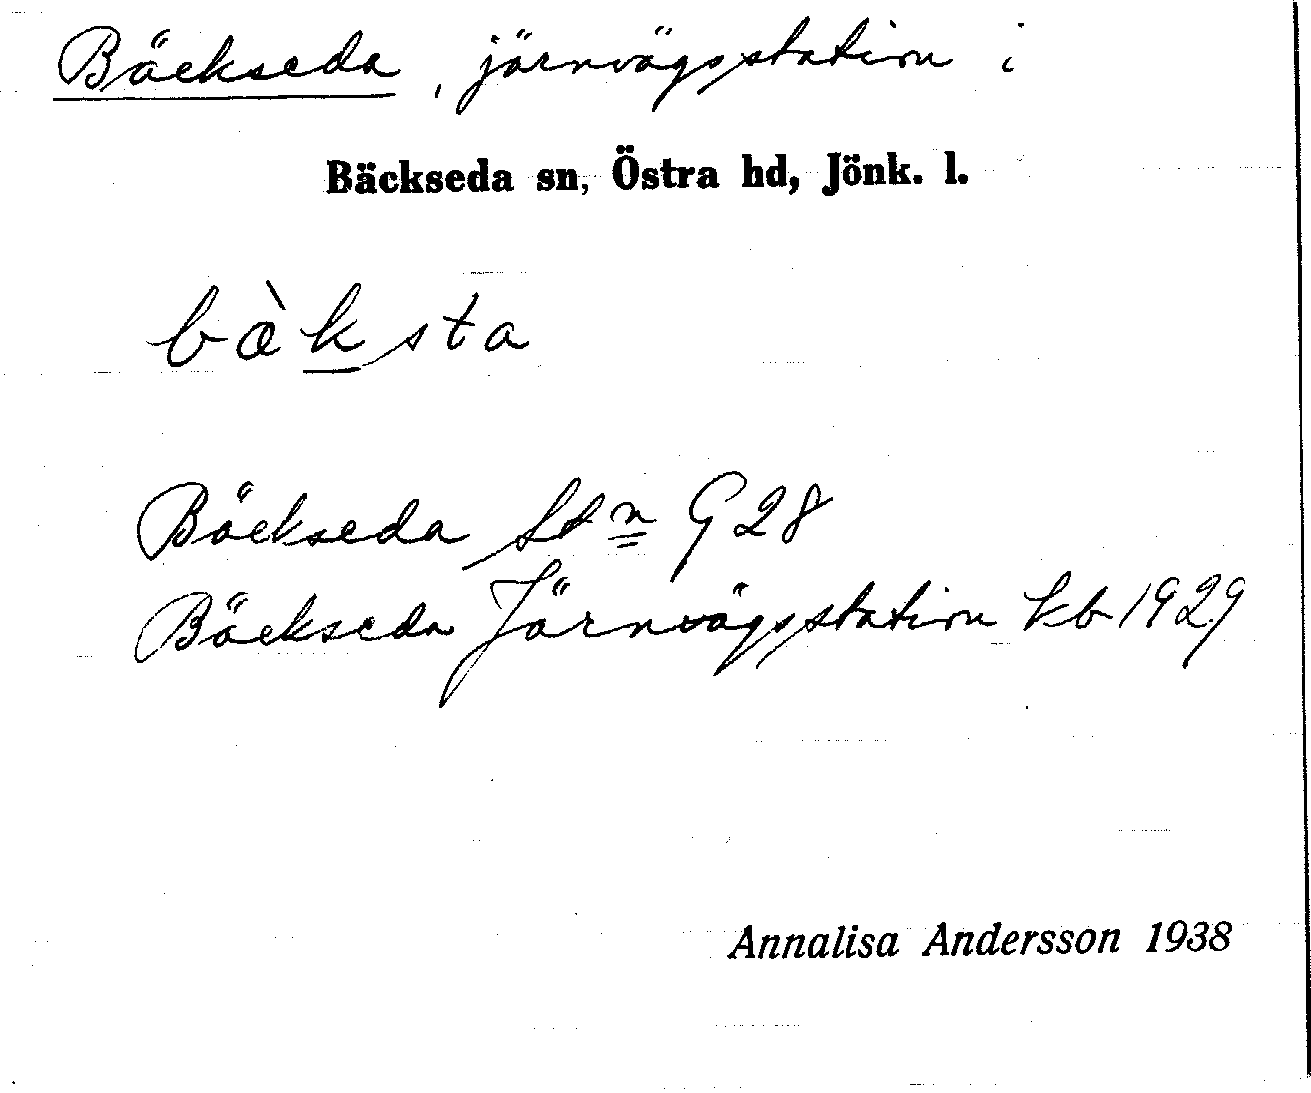 Bäckseda, järnvägsstation i
Bäckseda sn, Östra hd, Jönk. l.
bæ̀ksta
Bäckseda Stn G 28
Bäckseda Järnvägsstation kb 1929
Annalisa Andersson 1938